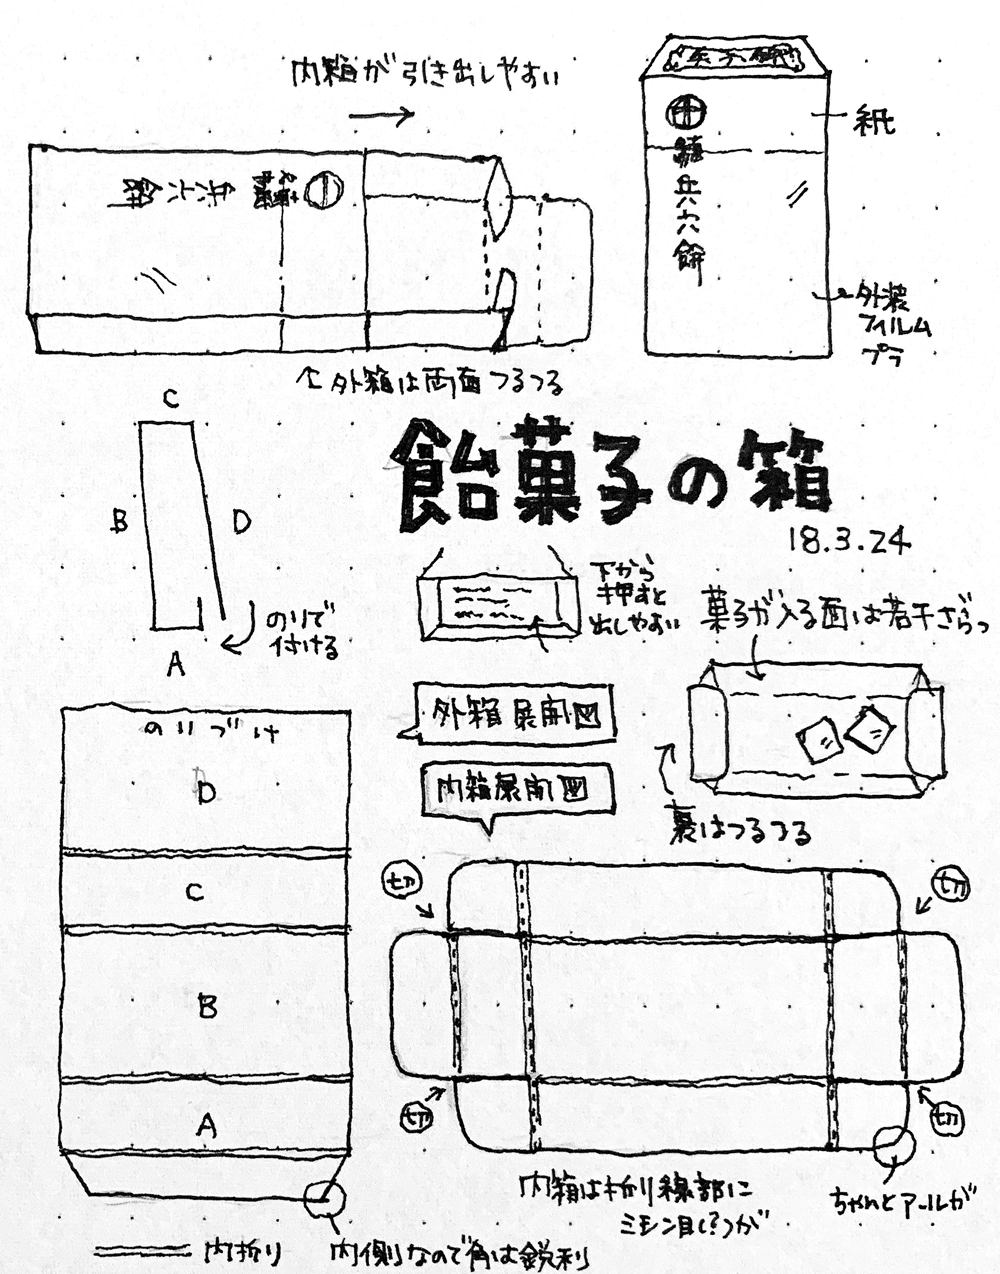 内箱が引き出しやすい
紙
兵六餅
外装
フィルム
プラ
↑外箱は両面つるつる
C
B
D
A
のりで
付ける
飴菓子の箱
18.3.24
下から
押すと
出しやすい
菓子が入る面は若干ざらっ
外箱展開図
内箱展開図
裏はつるつる
のりづけ
D
C
B
A
切
切
切
切
内箱は折り線部に
ミシン目(?)が
ちゃんとアールが
内折り
内側なので角は鋭利